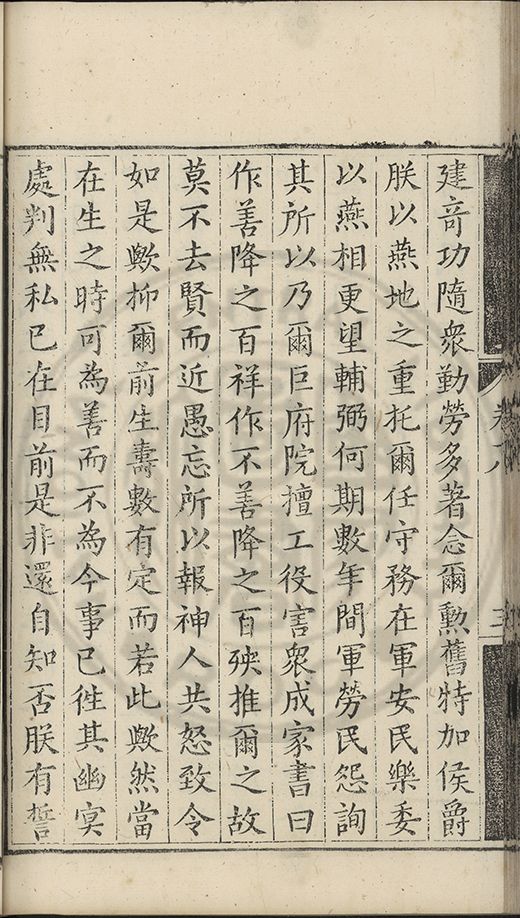 建竒功隨衆勤勞多著念爾勲舊特加侯爵
朕以燕地之重托爾任守務在軍安民樂委
以燕相更望輔弼何期數年間軍勞民怨詢
其所以乃爾巨府院擅工役害衆成家書曰
作善降之百祥作不善降之百殃推爾之故
莫不去賢而近愚忘所以報神人共怒致令
如是歟抑爾前生壽數有定而若此歟然當
在生之時可為善而不為今事已徃其幽冥
處判無私已在目前是非還自知否朕有誓
卷八
三